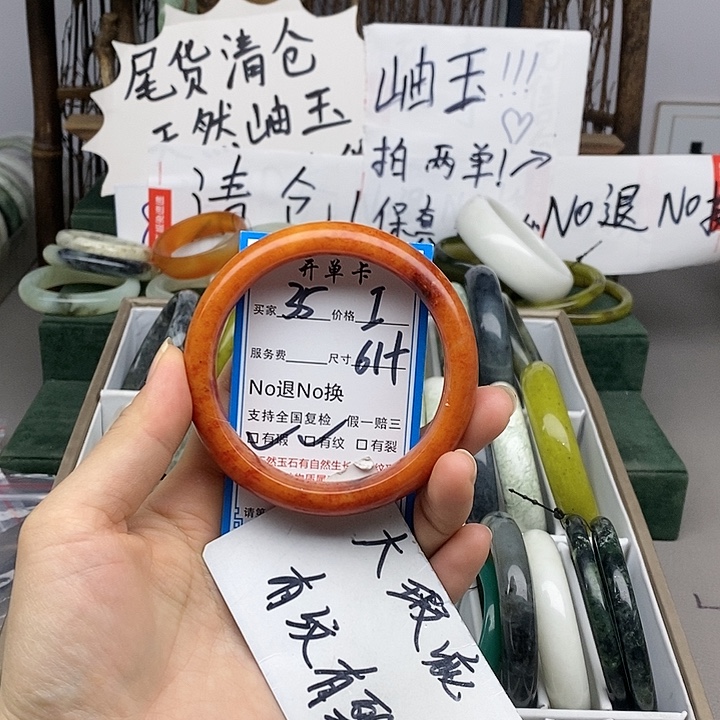 尾货清仓
天然岫玉
清仓
岫玉!!!
拍两单!
保真
No退 No换
开单卡
买家 35 价格 1
服务费 尺寸 61+
No退No换
支持全国复检 假一赔三
有瑕 有纹 有裂
天然玉石有自然生长
大瑕疵
有纹有裂